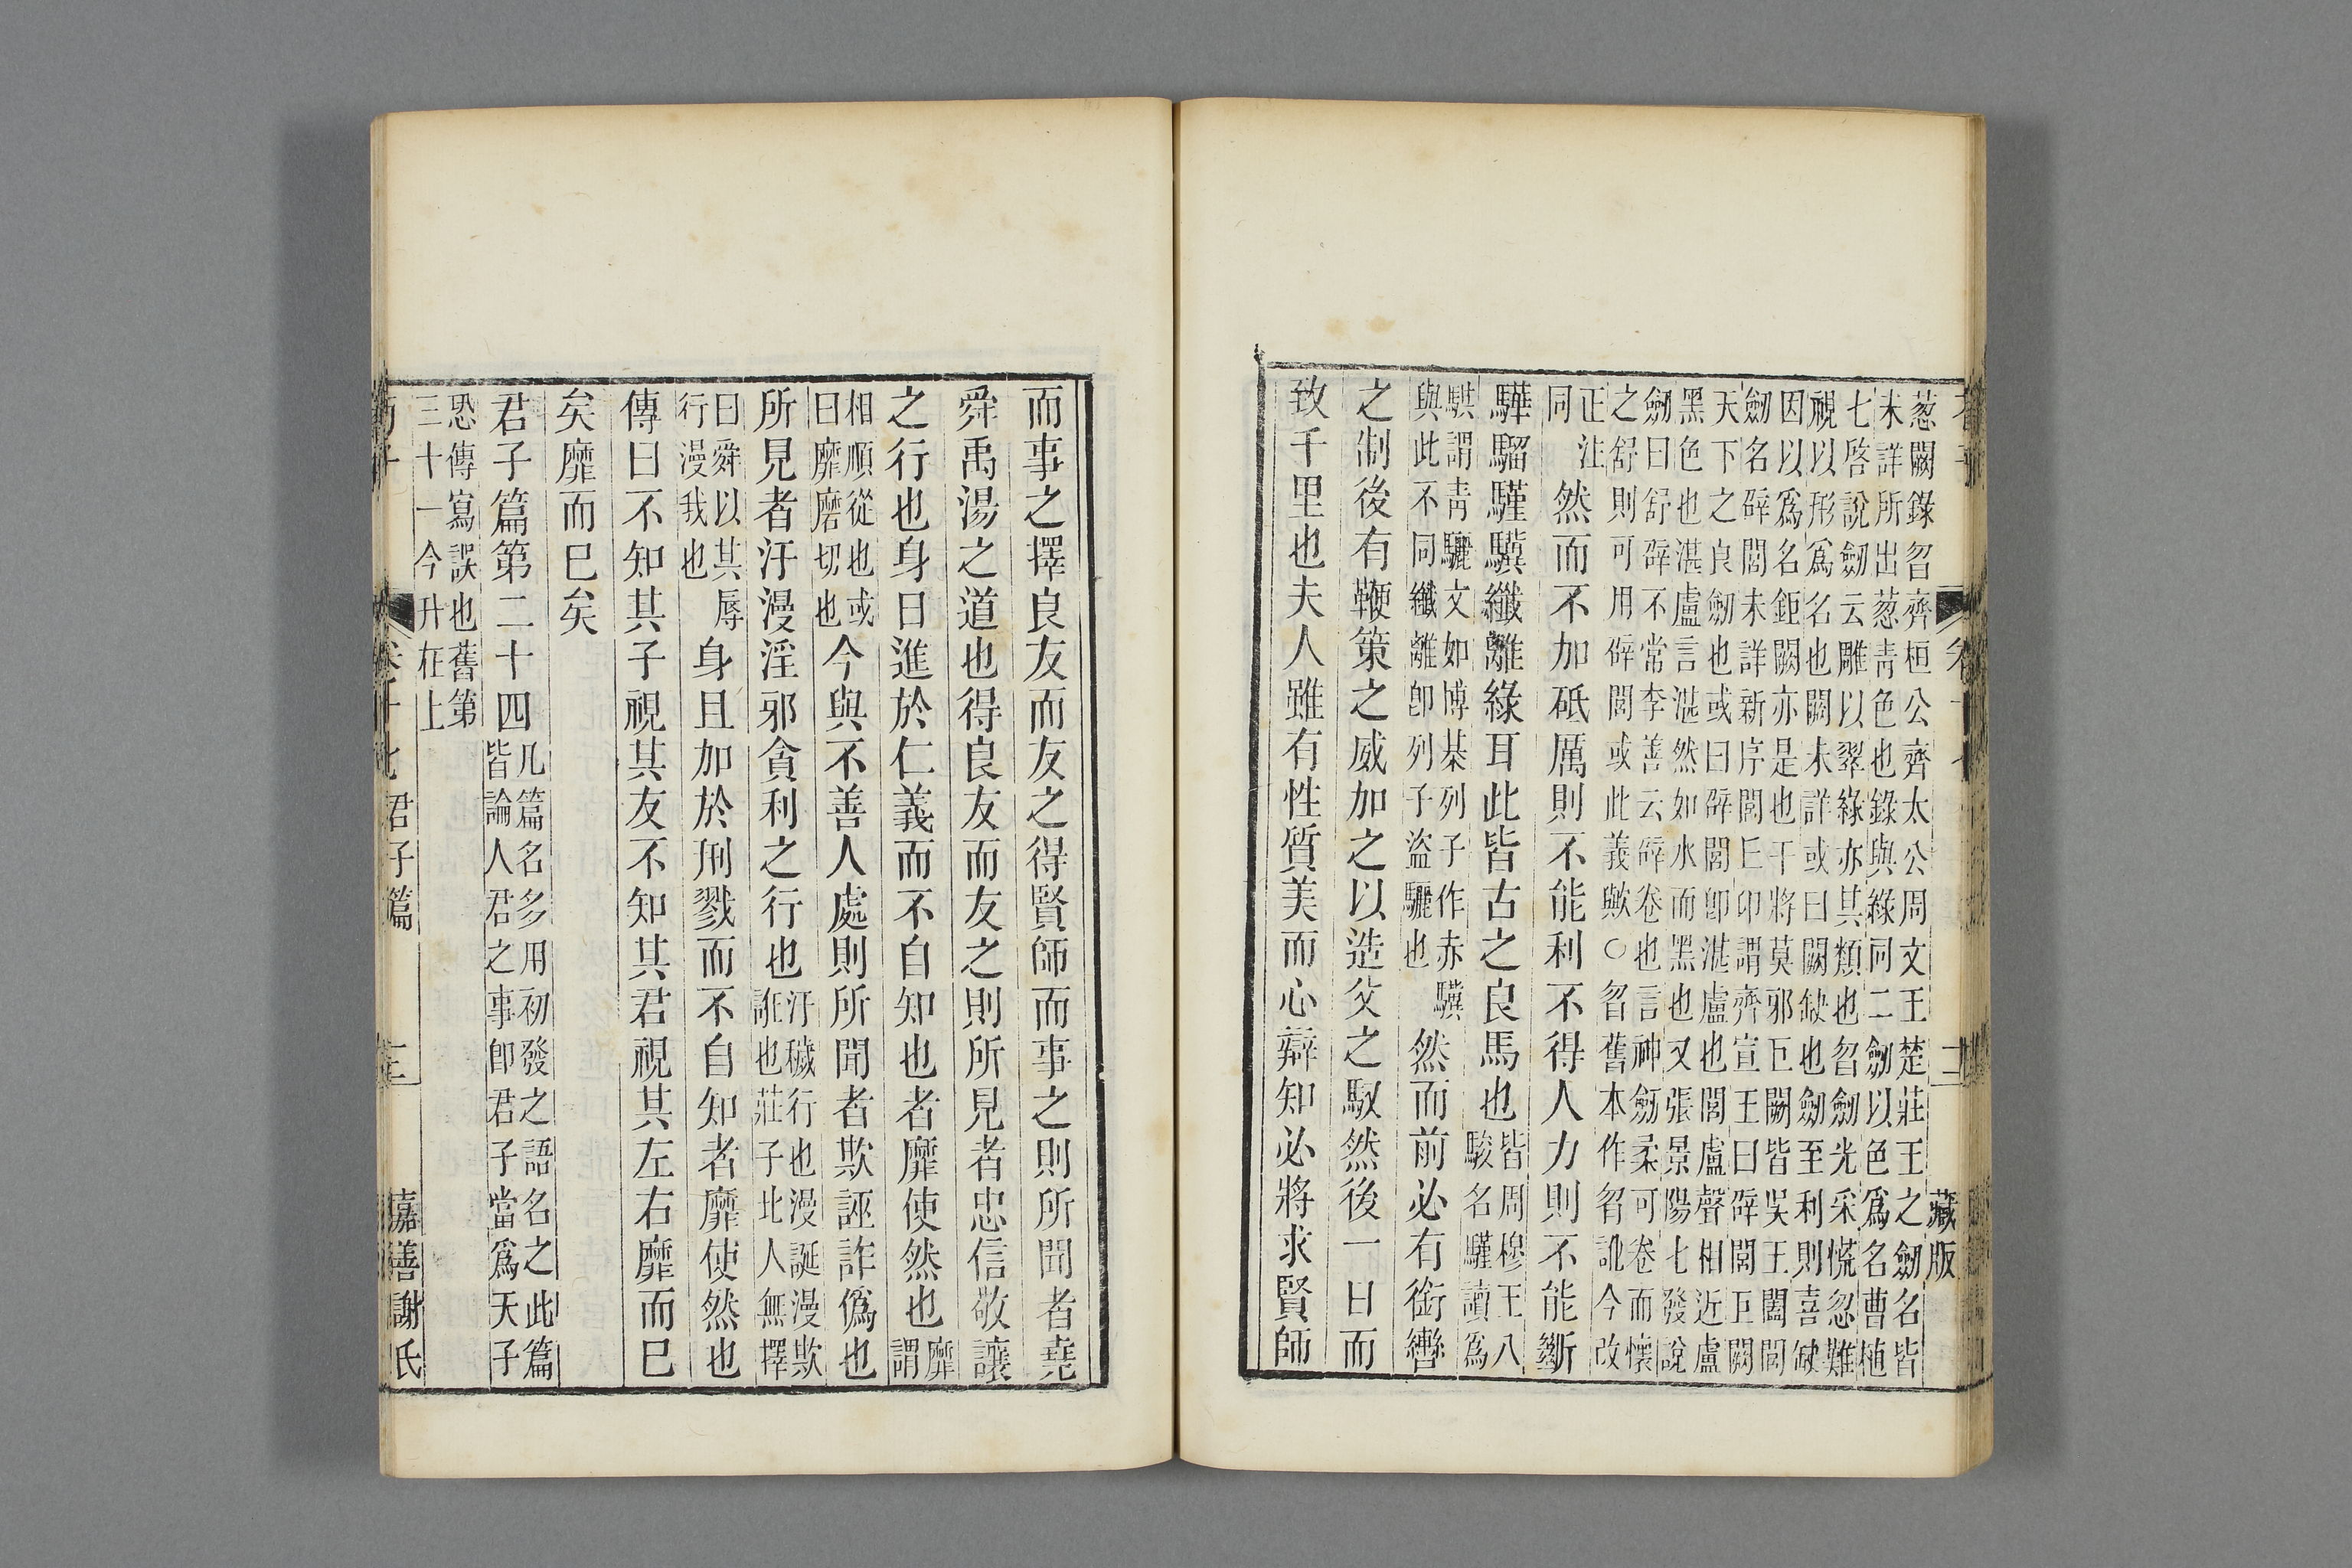 荀子 卷十七 二 藏版
葱闕錄曶齊桓公齊太公周文王楚莊王之劒名皆
未詳所出葱靑色也錄與綠同二劒以色爲名曹植
七啓說劒云雕以翠綠亦其類也曶劒光采慌忽難
視以形爲名也闕未詳或曰闕缺也劒至利則喜缺
因以爲名鉅闕亦是也干將莫邪巨闕皆吳王闔閭
劒名辟閭未詳新序閭丘卬謂齊宣王曰辟閭巨闕
天下之良劒也或曰辟閭卽湛盧也閭盧聲相近盧
黑色也湛盧言湛然如水而黑也又張景陽七發說
劒曰舒辟不常李善云辟卷也言神劒柔可卷而懷
之舒則可用辟閭或此義歟○曶舊本作㫚訛今改
正注
同
然而不加砥厲則不能利不得人力則不能斷
驊騮騹驥纖離綠耳此皆古之良馬也
皆周穆王八
駿名騹讀爲
騏謂靑驪文如博棊列子作赤驥
與此不同纖離卽列子盜驪也
然而前必有銜轡
之制後有鞭策之威加之以造父之馭然後一日而
致千里也夫人雖有性質美而心辯知必將求賢師
而事之擇良友而友之得賢師而事之則所聞者堯
舜禹湯之道也得良友而友之則所見者忠信敬讓
之行也身日進於仁義而不自知也者靡使然也
靡
謂
相順從也或
曰靡磨切也
今與不善人處則所聞者欺誣詐僞也
所見者汙漫淫邪貪利之行也
汙穢行也漫誕漫欺
誑也莊子北人無擇
曰舜以其辱
行漫我也
身且加於刑戮而不自知者靡使然也
傳曰不知其子視其友不知其君視其左右靡而巳
矣靡而巳矣
君子篇第二十四
凡篇名多用初發之語名之此篇
皆論人君之事卽君子當爲天子
恐傳寫誤也舊第
三十一今升在上
荀子 卷十七 君子篇 三 嘉善謝氏